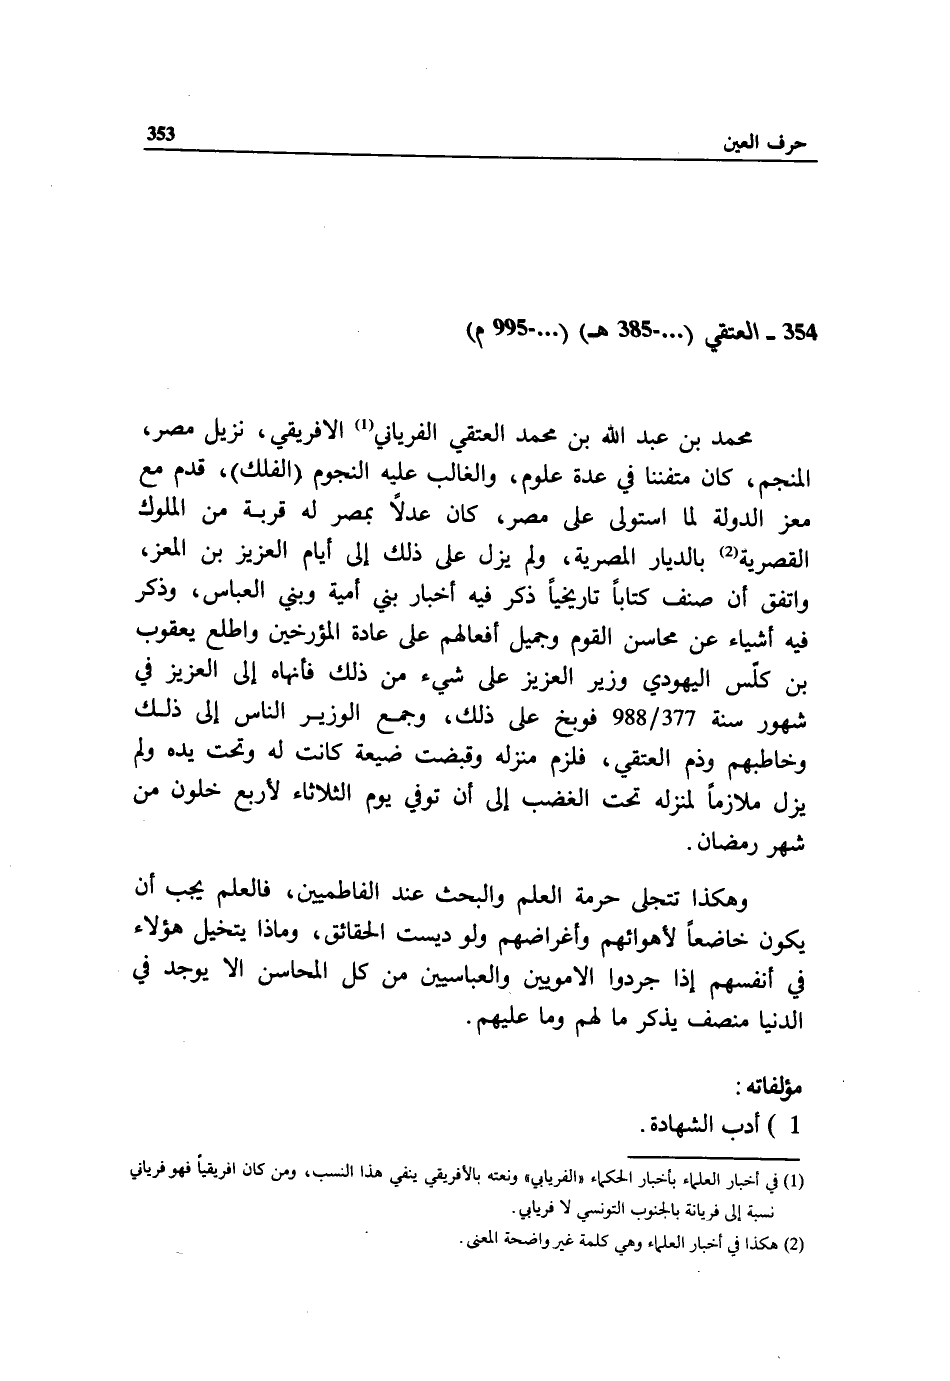 حرف العين 353
354 ـ العتقي (...-385 هـ) (...-995 م)
محمد بن عبد الله بن محمد العتقي الفرياني(1) الافريقي، نزيل مصر،
المنجم، كان متفننا في عدة علوم، والغالب عليه النجوم (الفلك)، قدم مع
معز الدولة لما استولى على مصر، كان عدلاً بمصر له قربة من الملوك
القصرية(2) بالديار المصرية، ولم يزل على ذلك إلى أيام العزيز بن المعز،
واتفق أن صنف كتاباً تاريخياً ذكر فيه أخبار بني أمية وبني العباس، وذكر
فيه أشياء عن محاسن القوم وجميل أفعالهم على عادة المؤرخين واطلع يعقوب
بن كلّس اليهودي وزير العزيز على شيء من ذلك فأنهاه إلى العزيز في
شهور سنة 988/377 فوبخ على ذلك، وجمع الوزير الناس إلى ذلك
وخاطبهم وذم العتقي، فلزم منزله وقبضت ضيعة كانت له وتحت يده ولم
يزل ملازماً لمنزله تحت الغضب إلى أن توفي يوم الثلاثاء لأربع خلون من
شهر رمضان.
وهكذا تتجلى حرمة العلم والبحث عند الفاطميين، فالعلم يجب أن
يكون خاضعاً لأهوائهم وأغراضهم ولو ديست الحقائق، وماذا يتخيل هؤلاء
في أنفسهم إذا جردوا الامويين والعباسيين من كل المحاسن الا يوجد في
الدنيا منصف يذكر ما لهم وما عليهم.
مؤلفاته :
1 ) أدب الشهادة.
(1) في أخبار العلماء بأخبار الحكماء «الفريابي» ونعته بالأفريقي ينفي هذا النسب، ومن كان افريقياً فهو فرياني
نسبة إلى فريانة بالجنوب التونسي لا فريابي.
(2) هكذا في أخبار العلماء وهي كلمة غير واضحة المعنى.